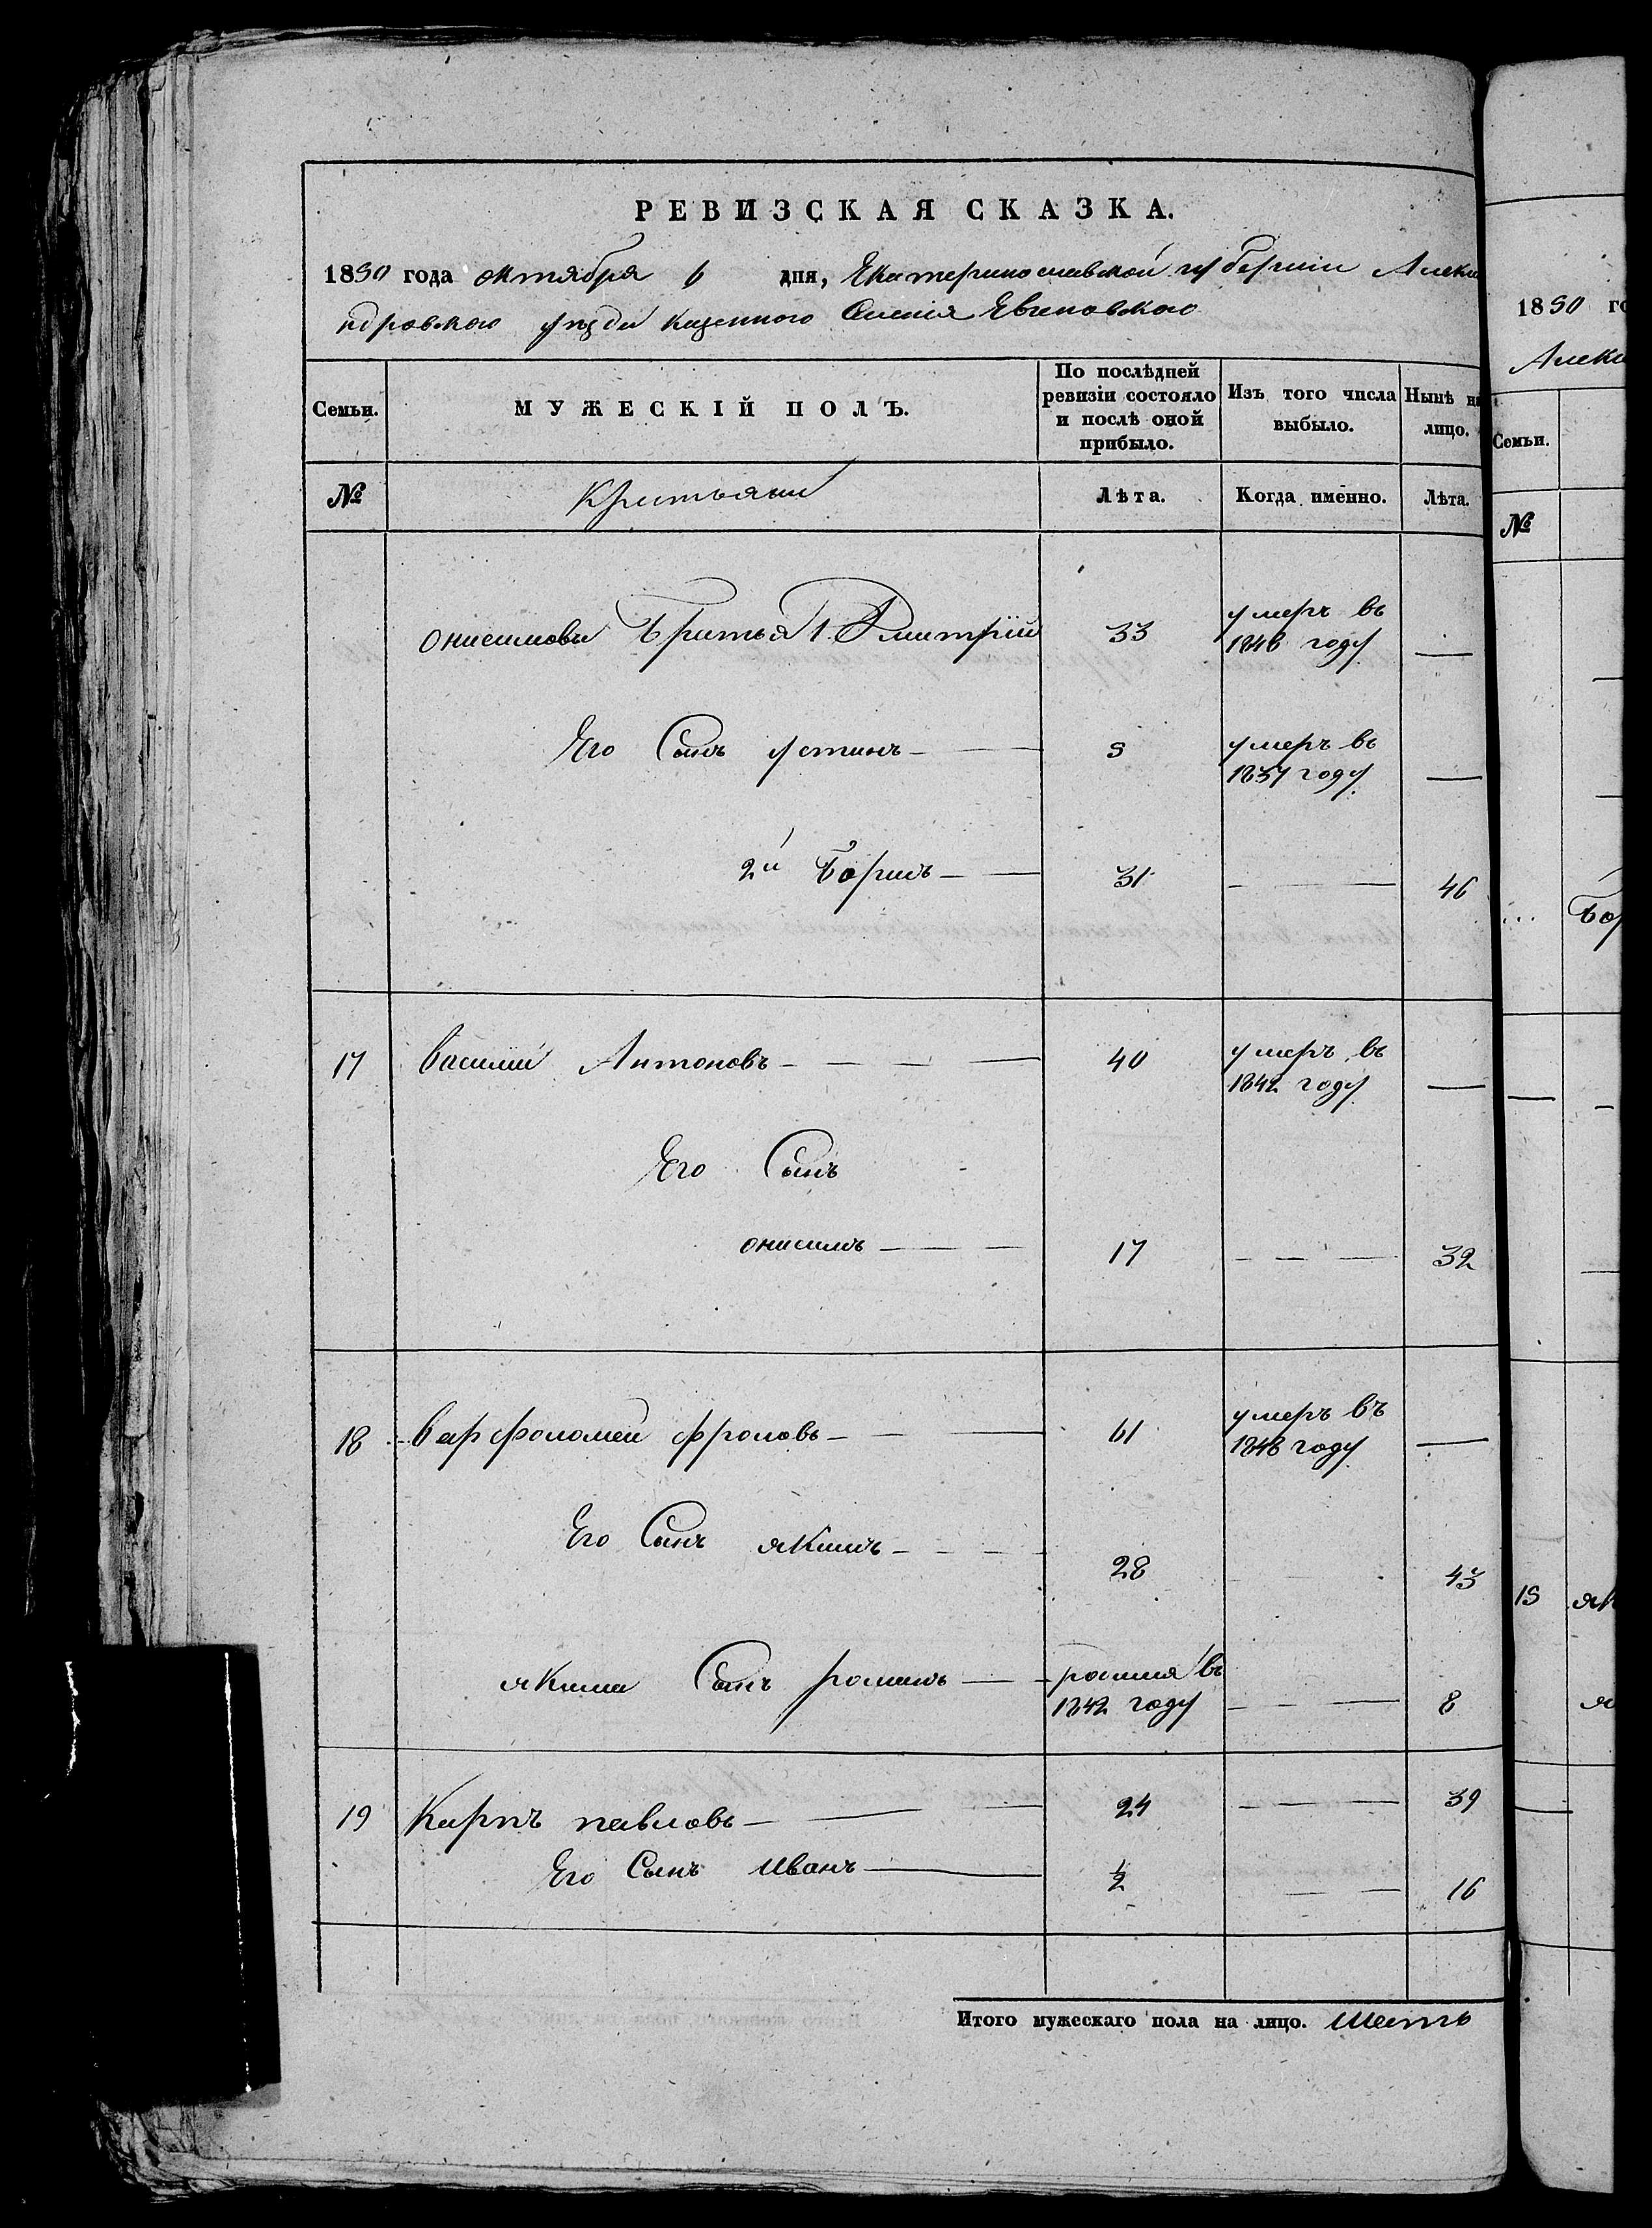 РЕВИЗСКАЯ СКАЗКА.
1850 года октября 6 дня, Екатеринославской губернiи Алекса
ндровскаго уѣзда казенного Селенiя
Семьи. МУЖЕСКIЙ ПОЛЪ. По послѣдней ревизiи состояло и послѣ оной прибыло. Изъ того числа выбыло. Нынѣ на лицо.
№ Крестьяни Лѣта. Когда именно. Лѣта.
Онисимова Братья 1. Дмитрiй 33 умеръ въ 1848 году —
Его Сынъ Устинъ — 5 умеръ въ 1837 году —
2й Борисъ — 31 — 46
17 Василiй Антоновъ — 40 умеръ въ 1842 году —
Его Сынъ
онисимъ — 17 — 32
18 Варфоломей Фроловъ — 61 умеръ въ 1848 году —
Его Сынъ якимъ — 28 — 43
якима Сынъ романъ — 1842 году — 8
19 Карпъ павловъ — 24 — 39
Его Сынъ Иванъ — ½ — 16
Итого мужескаго пола на лицо. Шесть
1850 го
Алекса
Семьи.
№
Бор
15 як
я